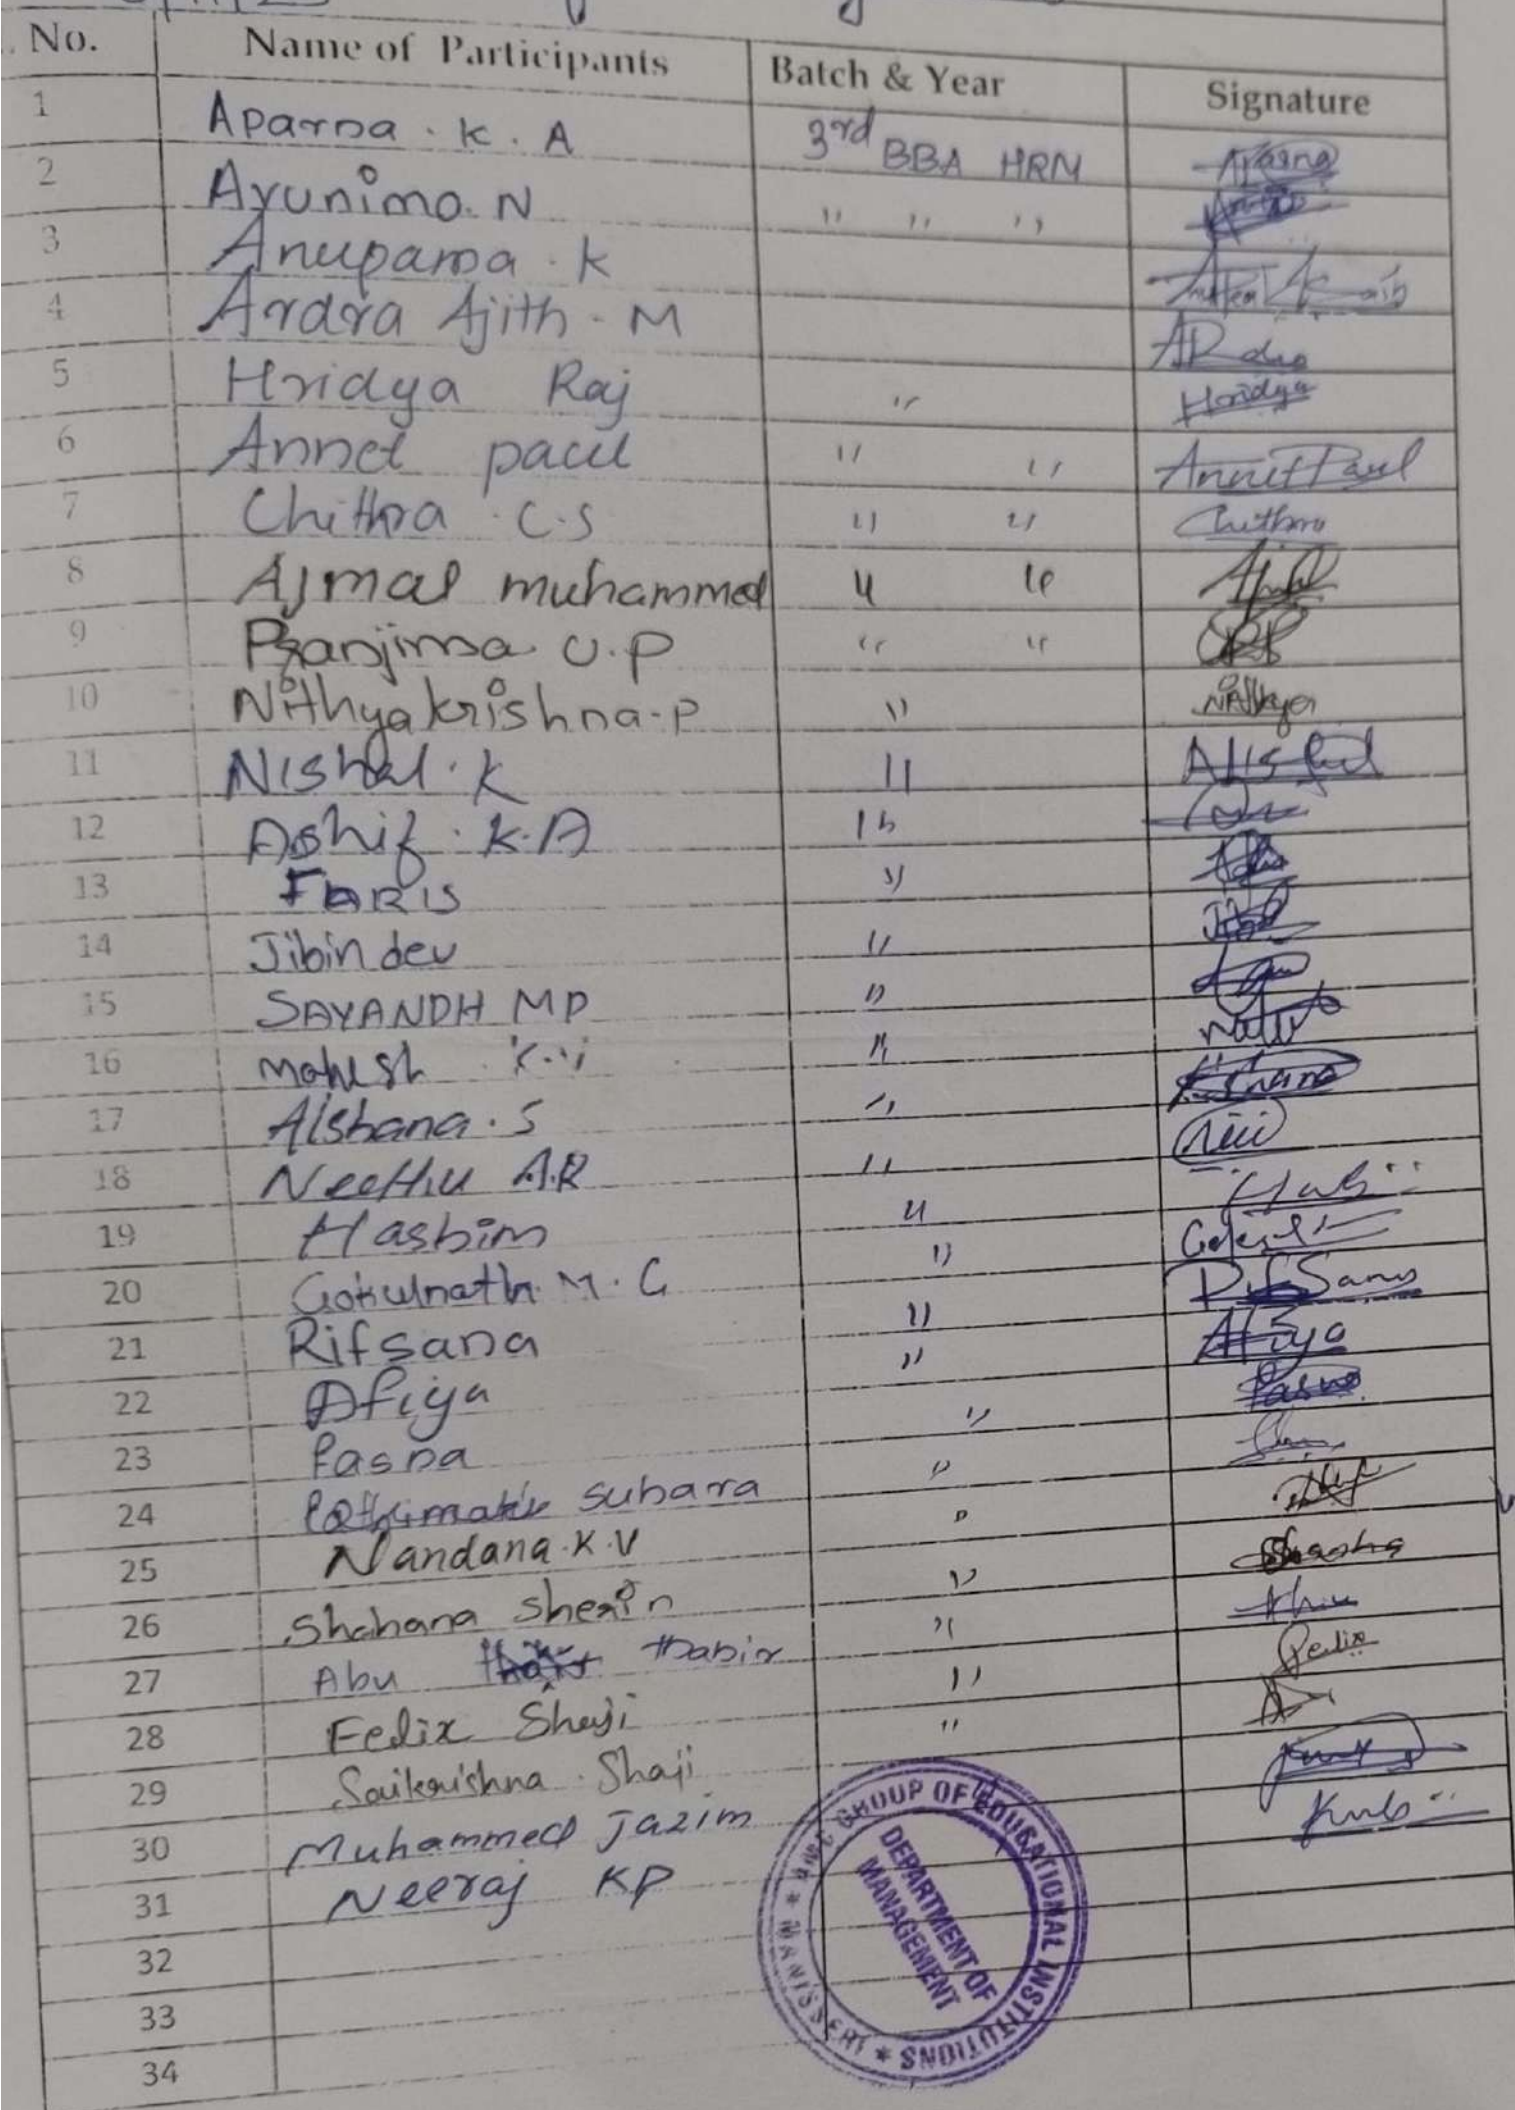 No. Name of Participants Batch & Year Signature
1 Aparna . K . A 3rd BBA HRM Aparna
2 Ayunima. N " " "
3 Anupama . K
4 Ardra Ajith - M ARdra
5 Hridya Raj " Hridya
6 Annet paul " " Annet Paul
7 Chithra . C.S " " Chithra
8 Ajmal muhammed " "
9 Pranjima U.P " "
10 Nithyakrishna - P " Nithya
11 Nishal . K "
12 Ashif . K.A "
13 FARIS "
14 Jibin dev "
15 SAYANDH MP "
16 Mahesh K.V "
17 Alshana . S "
18 Neethu A.R "
19 Hashim "
20 Gokulnath. M . G "
21 Rifsana " RifSana
22 Afiya " Afiya
23 Fasna " Fasna
24 Fathimath Suhara "
25 Nandana . K . V "
26 Shahana Sherin "
27 Abu thahir "
28 Felix Shaji " Felix
29 Saikrishna . Shaji "
30 Muhammed Jazim
31 Neeraj KP
32
33
34
GROUP OF EDUCATIONAL INSTITUTIONS * MANISSERY *
DEPARTMENT OF
MANAGEMENT